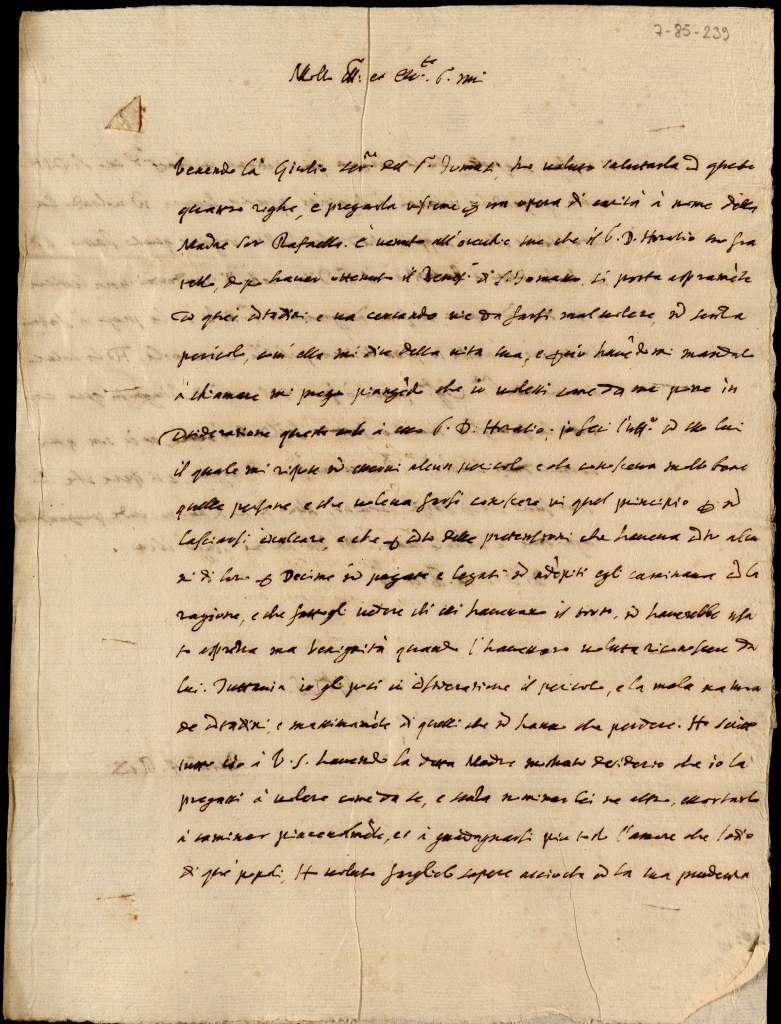 7-85-239
Molto Ill. et Ecc.te S. mio
Venendo là Giulio ser.re del S.r Tomasi, ho voluto salutarla cõ queste
quattro righe, e pregarla insieme ꝑ un opera di carità à nome della
Madre Sor Raffaella. È venuto all'orecchie sue che il S. D. Horatio suo fra
tello, dopo haver ottenuto il Benef.o di S. Tomaso, si porta aspramẽte
cõ quei cittadini, e va cercando vie da farsi mal volere, nõ senza
pericolo, com' ella mi dice della vita sua, e ꝑciò havẽdomi mandato
à chiamare mi pregò piangẽdo che io volessi come da me porre in
cõsideratione queste cose à esso S. D. Horatio; io feci l'uff.o cõ esso lui
il quale mi rispose nõ esservi alcun pericolo e che conosceva molto bene
quelle persone, e che voleva farsi conoscere in quel principio ꝑ nõ
lasciarsi calcare, e che ꝑ cõto delle pretensioni che haveva cõtro alcu
ni di loro ꝑ Decime nõ pagate e legati nõ adẽpiti egli caminava cõ la
ragione, e che fattogli vedere chi havevano il torto, nõ haverebbe usa
to asprezza ma benignità quando l'havessero voluta riconoscere da
lui. Tuttavia io gli posi in cõsideratione il pericolo, e la mala natura
de cittadini, e massimamẽte di quelli che nõ hano che perdere. Ho scritto
tutto ciò à V. S. havendo la detta Madre mostrato desiderio che io la
pregassi à volere come da se, e senza nominar lei ne altro, essortarlo
à caminar piacevolmẽte, et à guadagnarsi più tosto l'amore che l'odio
di que' popoli, Ho voluto farglielo sapere acciochè cõ la sua prudenza